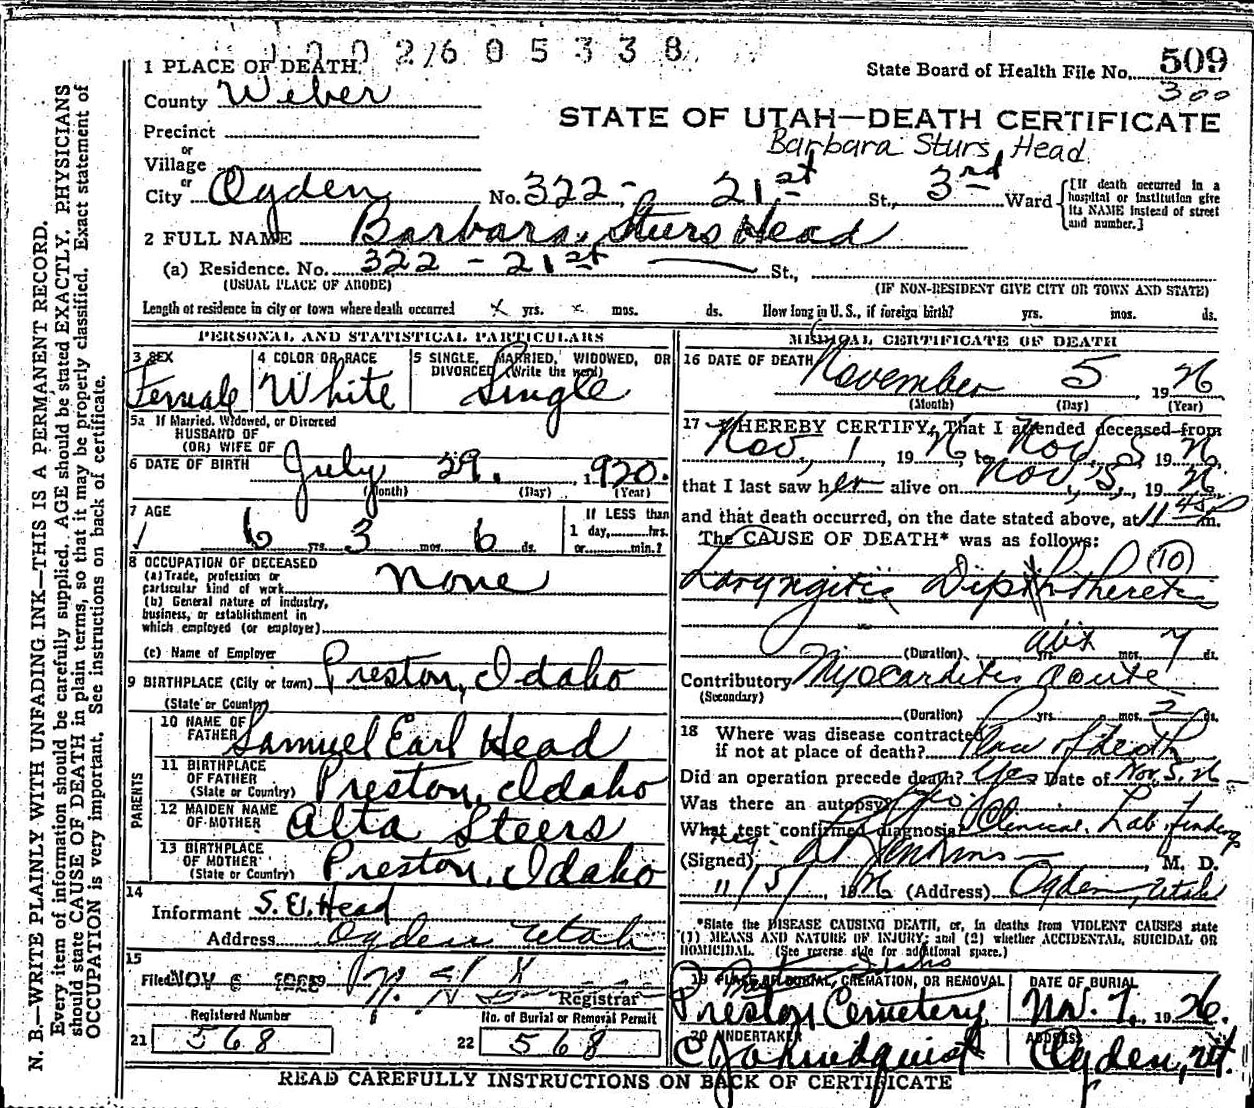 1 2 0 2 6 0 5 3 3 8
1 PLACE OF DEATH
State Board of Health File No. 509
300
County Weber
STATE OF UTAH—DEATH CERTIFICATE
Precinct
Barbara Sturs Head
or
Village
or
City Ogden No. 322- 21st St., 3rd Ward
[If death occurred in a hospital or institution give its NAME instead of street and number.]
2 FULL NAME Barbara Sturs Head
(a) Residence. No. 322 - 21st St.,
(USUAL PLACE OF ABODE) (IF NON-RESIDENT GIVE CITY OR TOWN AND STATE)
Length of residence in city or town where death occurred x yrs. x mos. ds. How long in U. S., if foreign birth? yrs. mos. ds.
PERSONAL AND STATISTICAL PARTICULARS
3 SEX
Female
4 COLOR OR RACE
White
5 SINGLE, MARRIED, WIDOWED, OR DIVORCED (Write the word)
Single
5a If Married, Widowed, or Divorced
HUSBAND OF
(OR) WIFE OF
6 DATE OF BIRTH July 29. 1920.
(Month) (Day) (Year)
7 AGE
6 yrs. 3 mos. 6 ds.
If LESS than
1 day,......hrs.
or......min.?
8 OCCUPATION OF DECEASED
(a) Trade, profession or
particular kind of work none
(b) General nature of industry,
business, or establishment in
which employed (or employer)
(c) Name of Employer
9 BIRTHPLACE (City or town) Preston, Idaho
(State or Country)
PARENTS
10 NAME OF FATHER Samuel Earl Head
11 BIRTHPLACE OF FATHER (State or Country) Preston, Idaho
12 MAIDEN NAME OF MOTHER Alta Steers
13 BIRTHPLACE OF MOTHER (State or Country) Preston, Idaho
14
Informant S. E. Head
Address Ogden Utah
15
Filed NOV 6
Registrar
Registered Number
21 568
No. of Burial or Removal Permit
22 568
MEDICAL CERTIFICATE OF DEATH
16 DATE OF DEATH November 5 1926
(Month) (Day) (Year)
17 I HEREBY CERTIFY, That I attended deceased from
Nov. 1, 1926, to Nov. 5, 1926,
that I last saw her alive on Nov. 5, 1926
and that death occurred, on the date stated above, at 11 45 P m.
The CAUSE OF DEATH* was as follows:
(10)
Laryngitis Diphtheretic
(Duration) yrs. mos. 7 ds.
Contributory Myocarditis acute
(Secondary)
(Duration) yrs. mos. 2 ds.
18 Where was disease contracted
if not at place of death? Place of death
Did an operation precede death? Yes Date of Nov. 5. 26
Was there an autopsy? No
What test confirmed diagnosis? Clinical. Lab. findings
neg.
(Signed) Jenkins, M. D.
11/5/, 1926 (Address) Ogden, Utah
*State the DISEASE CAUSING DEATH, or, in deaths from VIOLENT CAUSES state
(1) MEANS AND NATURE OF INJURY; and (2) whether ACCIDENTAL, SUICIDAL OR
HOMICIDAL. (See reverse side for additional space.)
Preston Idaho
19 PLACE OF BURIAL, CREMATION, OR REMOVAL
Preston Cemetery
DATE OF BURIAL
Nov. 7. 1926.
20 UNDERTAKER
ADDRESS
Ogden, Ut.
READ CAREFULLY INSTRUCTIONS ON BACK OF CERTIFICATE
N. B.—WRITE PLAINLY WITH UNFADING INK—THIS IS A PERMANENT RECORD.
Every item of information should be carefully supplied. AGE should be stated EXACTLY. PHYSICIANS
should state CAUSE OF DEATH in plain terms, so that it may be properly classified. Exact statement of
OCCUPATION is very important. See instructions on back of certificate.